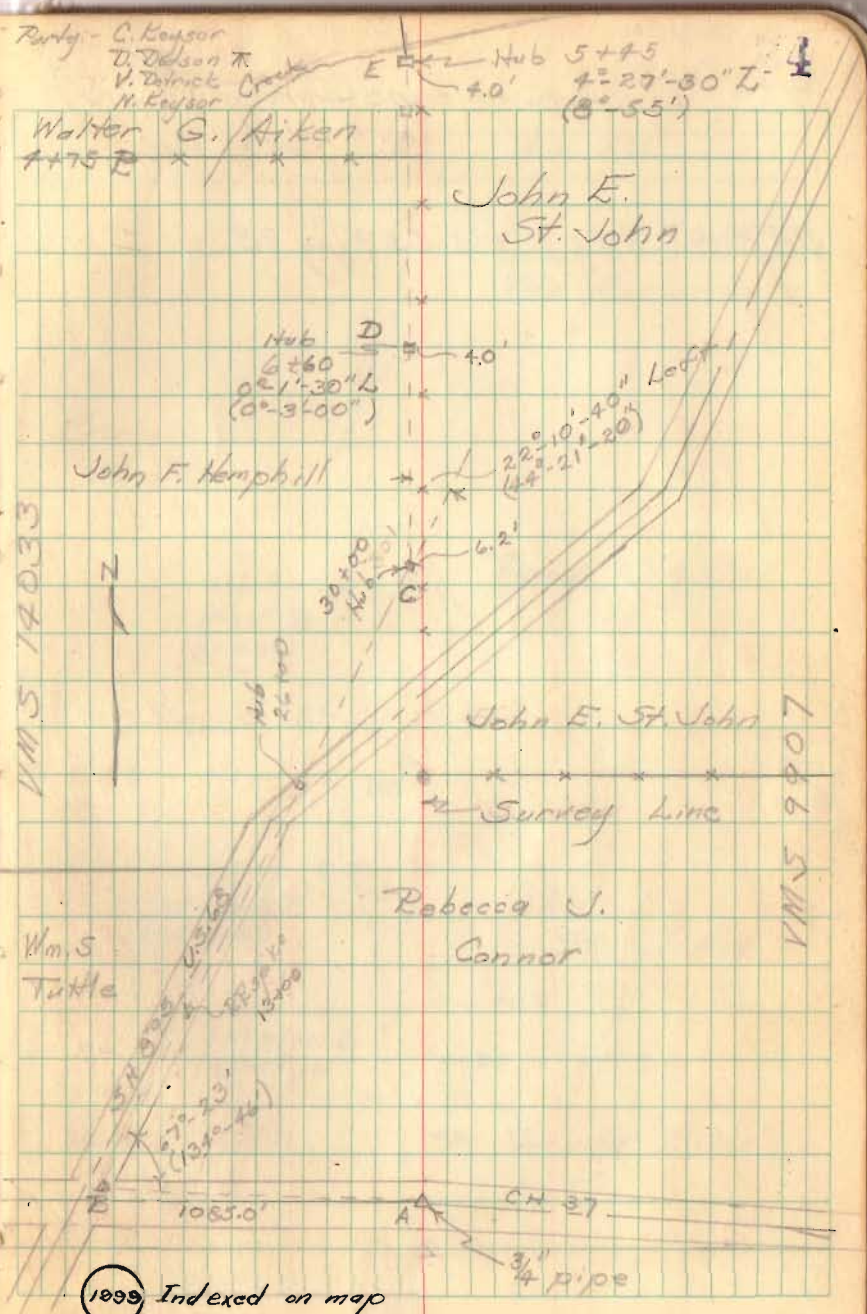 Party - C. Keysor
D. Dotson ⊼
V. Detrick
N. Keysor
Creek
E
Hub 5+45
4.0'
4°-27'-30" L
(8°-55')
4
Walter G. Aiken
4+75 P
John E.
St. John
Hub
6+60
0°-1'-30" L
(0°-3'-00")
D
4.0'
22°-10'-40" Left
(44°-21'-20")
John F. Hemphill
VMS 14033
N
6.2'
30+00
Hub
C
Hub
26+00
John E. St. John
Survey Line
VMS 9907
Rebecca J.
Connor
Wm. S
Tuttle
U.S. 68
RR Spike
13+00
67°-23'
(134°-46')
B
1085.0'
A
CH 37
3/4" pipe
1999 Indexed on map